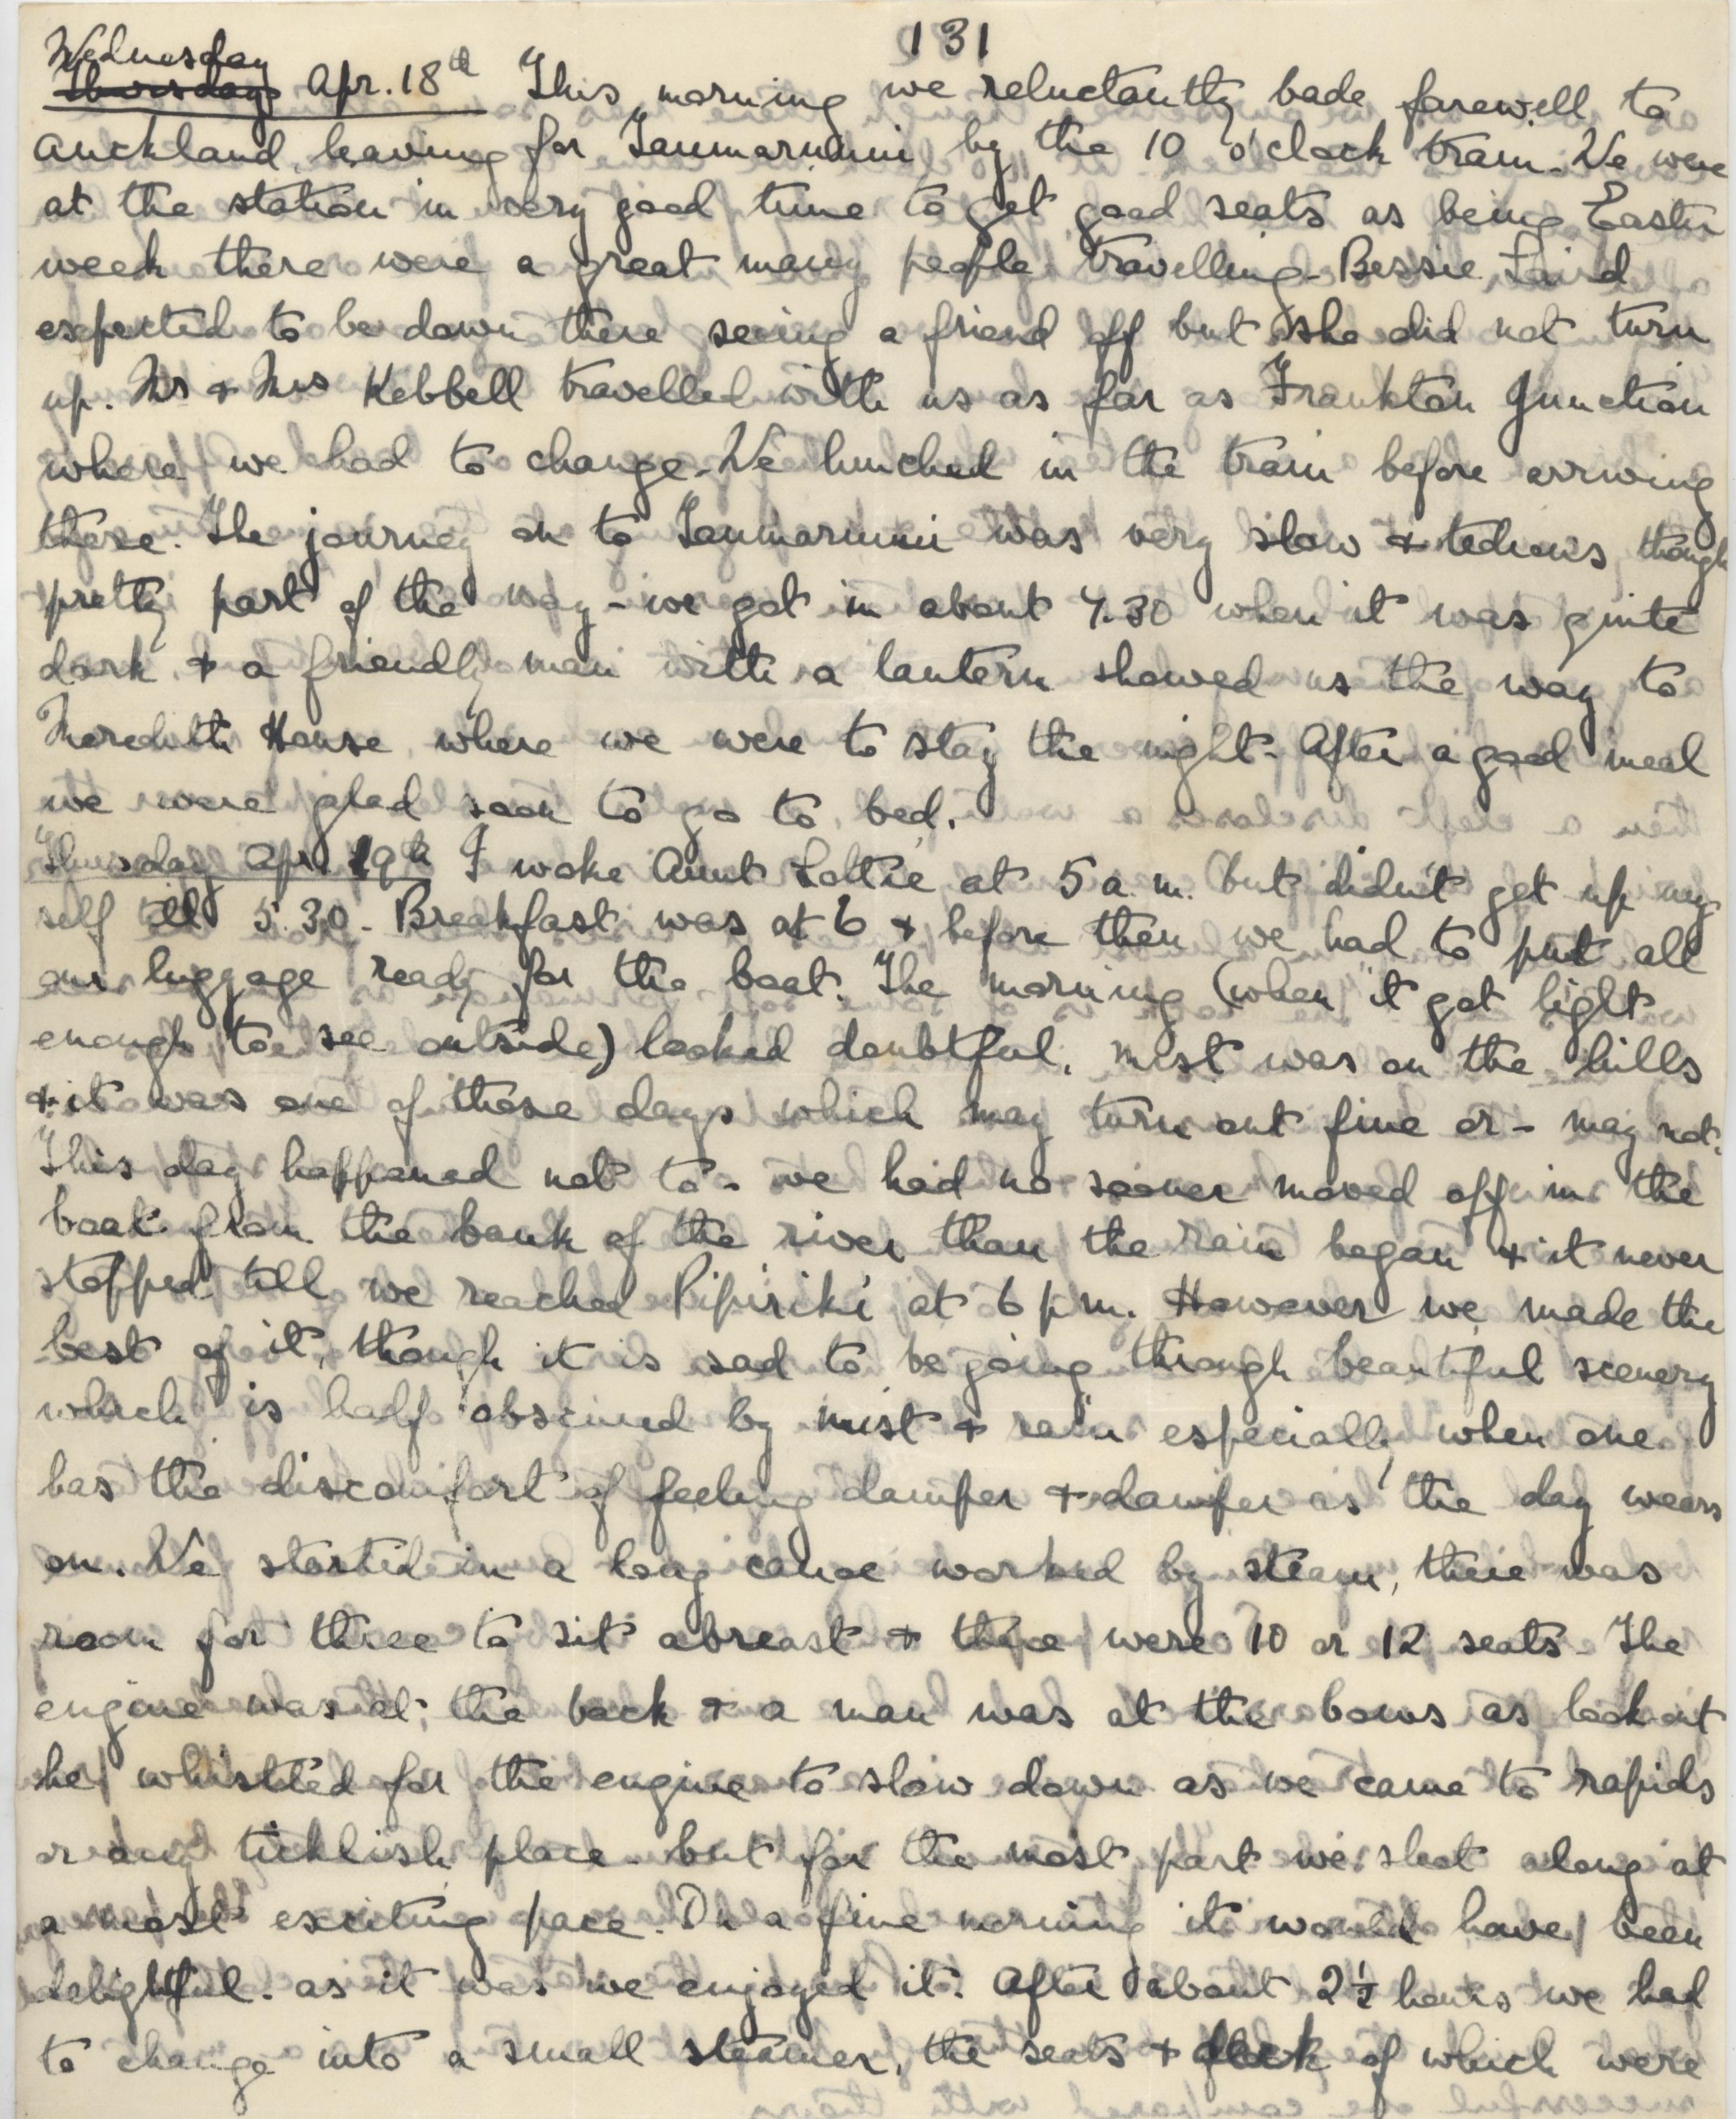 131
Wednesday
Thursday Apr. 18th This morning we reluctantly bade farewell to
Auckland, leaving for Taumarunui by the 10 o'clock train. We were
at the station in very good time to get good seats as being Easter
week there were a great many people travelling. Bessie Laird
expected to be down there seeing a friend off but she did not turn
up. Mr & Mrs Kebbell travelled with us as far as Frankton Junction
where we had to change. We lunched in the train before arriving
there. The journey on to Taumarunui was very slow & tedious though
pretty part of the way - we got in about 7.30 when it was quite
dark & a friendly man with a lantern showed us the way to
Meredith House where we were to stay the night. After a good meal
we were glad soon to go to bed.
Thursday Apr. 19th I woke Aunt Lottie at 5 a.m. but didn't get up my
self till 5.30. Breakfast was at 6 & before then we had to put all
our luggage ready for the boat. The morning (when it got light
enough to see outside) looked doubtful, mist was on the hills
& it was one of those days which may turn out fine or - may not.
This day happened not to - we had no sooner moved off in the
boat from the bank of the river than the rain began & it never
stopped till we reached Pipiriki at 6 p.m. However we made the
best of it, though it is sad to be going through beautiful scenery
which is half obscured by mist & rain especially when one
has the discomfort of feeling damper & damper as the day wears
on. We started in a long canoe worked by steam, there was
room for three to sit abreast & there were 10 or 12 seats. The
engine was at the back & a man was at the bows as look out
he whistled for the engine to slow down as we came to rapids
or any ticklish place - but for the most part we shot along at
a most exciting pace. On a fine morning it would have been
delightful. as it was we enjoyed it. After about 2½ hours we had
to change into a small steamer, the seats & deck of which were